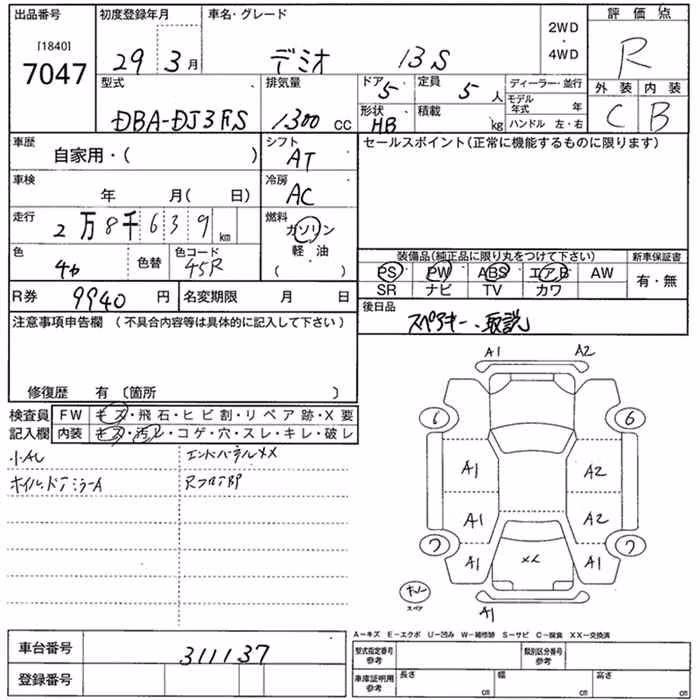 出品番号 初度登録年月 車名・グレード 2WD・4WD 評価点
[1840] 7047 29 3月 デミオ 13S R
型式 排気量 ドア 5 定員 5人 ディーラー・並行 外装 内装
DBA-DJ3FS 1300cc 形状 HB 積載 kg モデル年式 年 ハンドル 左・右 C B
車歴 自家用・( ) シフト AT セールスポイント(正常に機能するものに限ります)
車検 年 月( 日) 冷房 AC
走行 2万8千639km 燃料 ガソリン・軽油( )
色 色替 色コード 45R
装備品(純正品に限り丸をつけて下さい) 新車保証書
PS PW ABS エアB AW 有・無
SR ナビ TV カワ
R券 9940円 名変期限 月 日 後日品
スペアキー、取説
注意事項申告欄 (不具合内容等は具体的に記入して下さい)
修復歴 有〔箇所 〕
検査員記入欄 FW キズ・飛石・ヒビ割・リペア跡・X要
内装 キズ・汚レ・コゲ・穴・スレ・キレ・破レ
小AU エンドパネルXX
ホイル、ドアミラーA
A1 A2
6 6
A1 A2
A1 A2
7 A1 A1 7
スペア
A1
A-キズ E-エクボ U-凹み W-補修跡 S-サビ C-腐食 XX-交換済
車台番号 311137 型式指定番号参考 類別区分番号参考
登録番号 車庫証明用参考 長さ cm 幅 cm 高さ cm